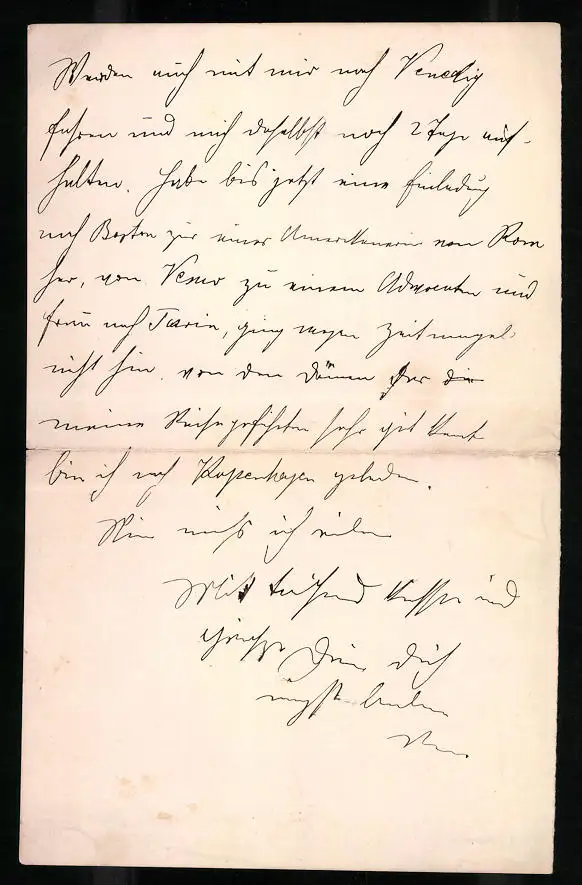 Werden auch mit mir nach Venedig
fahren und mich daselbst noch 2 Tage auf-
halten. Habe bis jetzt eine Einladung
nach Boston zu einer Amerikanerin von Rom
her, von zu einem Advocaten und
Frau nach Turin, ging wegen Zeitmangel
nicht hin, von den Dänen der die
meine Reisegefährten sehr gut kennt
bin ich nach Kopenhagen geladen.
Nun muß ich eilen
Mit tausend Küssen und
Grüße Deine Dich